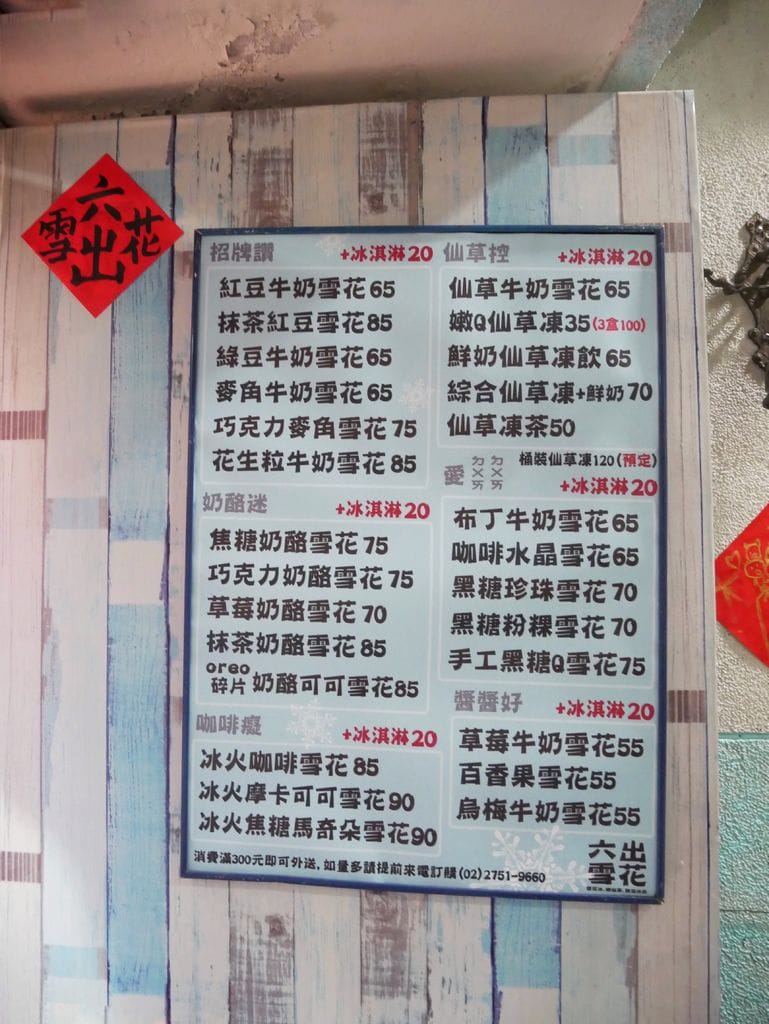 六
雪 花
出
招牌讚 +冰淇淋20
紅豆牛奶雪花65
抹茶紅豆雪花85
綠豆牛奶雪花65
麥角牛奶雪花65
巧克力麥角雪花75
花生粒牛奶雪花85
奶酪迷 +冰淇淋20
焦糖奶酪雪花75
巧克力奶酪雪花75
草莓奶酪雪花70
抹茶奶酪雪花85
oreo
碎片奶酪可可雪花85
咖啡癮 +冰淇淋20
冰火咖啡雪花85
冰火摩卡可可雪花90
冰火焦糖馬奇朵雪花90
仙草控 +冰淇淋20
仙草牛奶雪花65
嫩Q仙草凍35(3盒100)
鮮奶仙草凍飲65
綜合仙草凍+鮮奶70
仙草凍茶50
桶裝仙草凍120(預定)
愛ㄉㄨㄞㄉㄨㄞ +冰淇淋20
布丁牛奶雪花65
咖啡水晶雪花65
黑糖珍珠雪花70
黑糖粉粿雪花70
手工黑糖Q雪花75
醬醬好 +冰淇淋20
草莓牛奶雪花55
百香果雪花55
烏梅牛奶雪花55
消費滿300元即可外送,如量多請提前來電訂購(02)2751-9660
六出
雪花